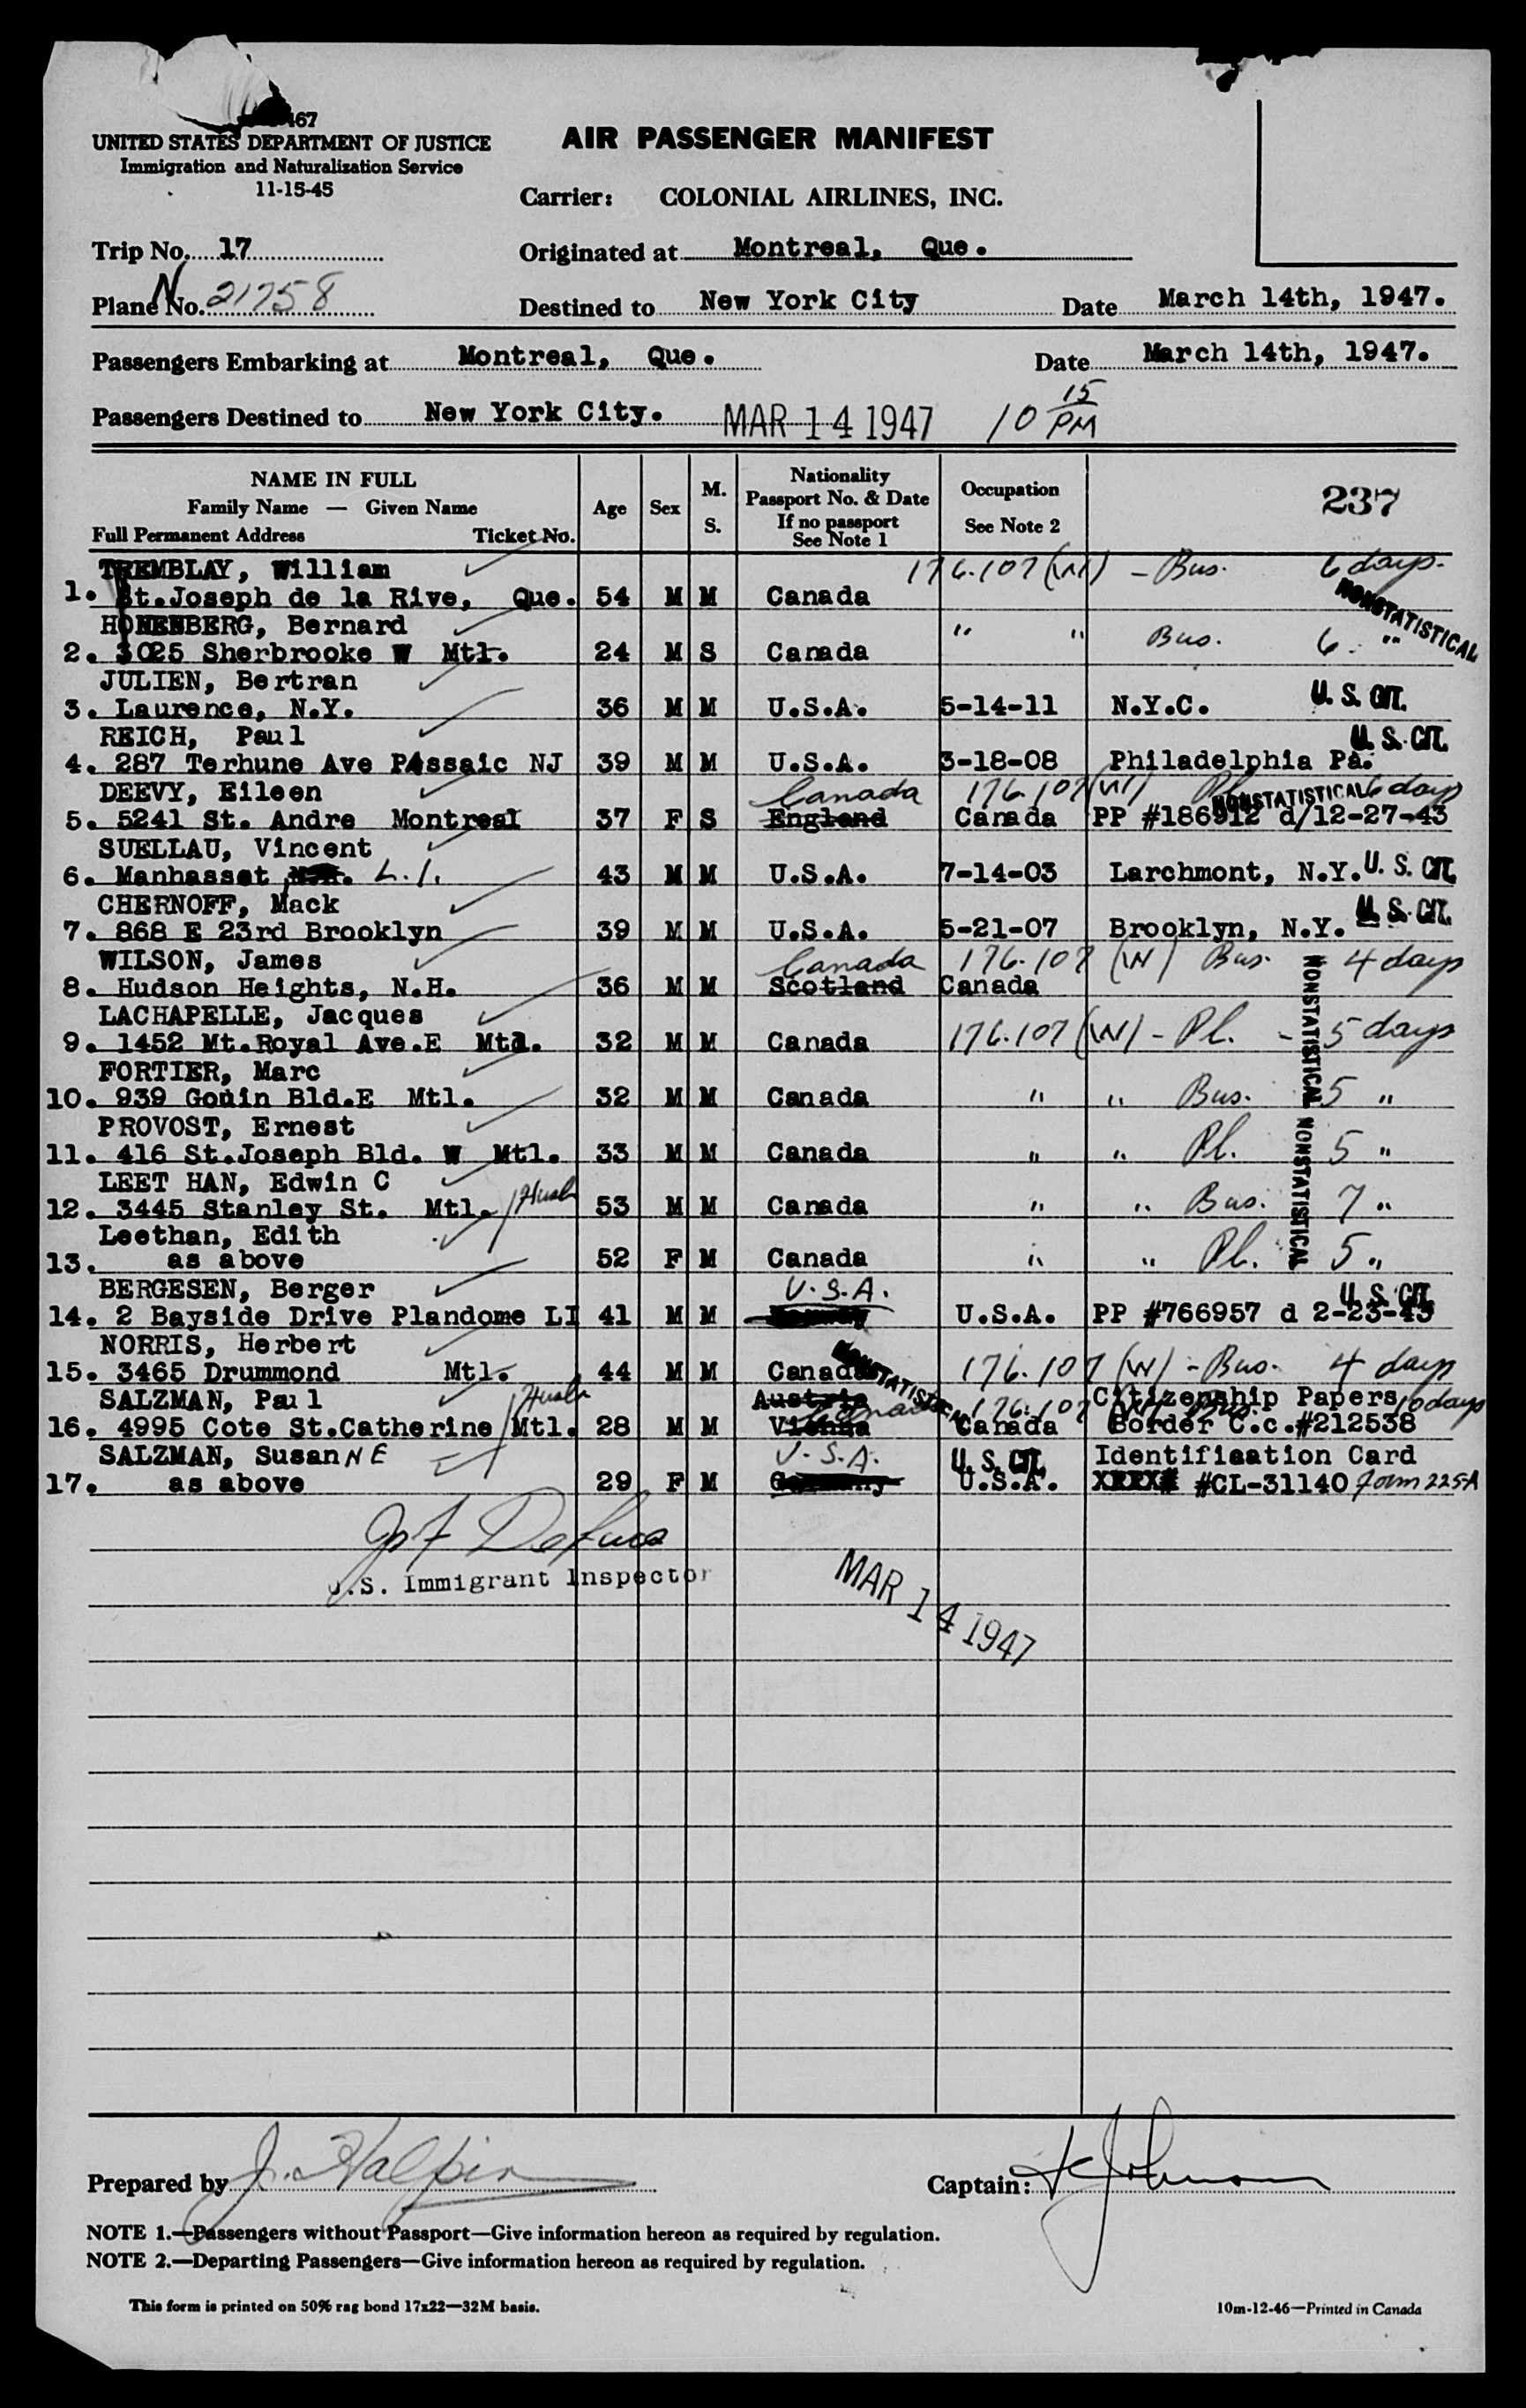 467
UNITED STATES DEPARTMENT OF JUSTICE
Immigration and Naturalization Service
11-15-45
AIR PASSENGER MANIFEST
Carrier: COLONIAL AIRLINES, INC.
Trip No. 17
Originated at Montreal, Que.
Plane No. N 21758
Destined to New York City Date March 14th, 1947.
Passengers Embarking at Montreal, Que. Date March 14th, 1947.
Passengers Destined to New York City. MAR 14 1947 10 15 PM
NAME IN FULL
Family Name — Given Name
Full Permanent Address Ticket No.
Age Sex M. S.
Nationality
Passport No. & Date
If no passport
See Note 1
Occupation
See Note 2
237
TREMBLAY, William 176.107 (W) - Bus. 6 days.
1. St.Joseph de la Rive, Que. 54 M M Canada
NONSTATISTICAL
HONENBERG, Bernard " " Bus. 6 "
2. 3025 Sherbrooke W Mtl. 24 M S Canada
JULIEN, Bertran
3. Laurence, N.Y. 36 M M U.S.A. 5-14-11 N.Y.C. U.S. CIT.
REICH, Paul U.S. CIT.
4. 287 Terhune Ave Passaic NJ 39 M M U.S.A. 3-18-08 Philadelphia Pa.
DEEVY, Eileen Canada 176.107 (W) Pl. NONSTATISTICAL 6 days
5. 5241 St. Andre Montreal 37 F S England Canada PP #186912 d/12-27-43
SUELLAU, Vincent
6. Manhasset L.I. 43 M M U.S.A. 7-14-03 Larchmont, N.Y. U.S. CIT.
CHERNOFF, Mack U.S. CIT.
7. 868 E 23rd Brooklyn 39 M M U.S.A. 5-21-07 Brooklyn, N.Y.
WILSON, James Canada 176.107 (W) Bus. 4 days
8. Hudson Heights, N.H. 36 M M Scotland Canada
NONSTATISTICAL
LACHAPELLE, Jacques 176.107 (W) - Pl. - 5 days
9. 1452 Mt.Royal Ave.E Mtl. 32 M M Canada
FORTIER, Marc
10. 939 Gouin Bld.E Mtl. 32 M M Canada " " Bus. 5 "
PROVOST, Ernest
11. 416 St.Joseph Bld. W Mtl. 33 M M Canada " " Pl. 5 "
NONSTATISTICAL
LEET HAN, Edwin C
12. 3445 Stanley St. Mtl. Husb 53 M M Canada " " Bus. 7 "
Leethan, Edith
13. as above 52 F M Canada " " Pl. 5 "
BERGESEN, Berger U.S.A. U.S. CIT.
14. 2 Bayside Drive Plandome LI 41 M M U.S.A. PP #766957 d 2-23-45
NORRIS, Herbert
15. 3465 Drummond Mtl. 44 M M Canada 176.107 (W) - Bus. 4 days
NONSTATISTICAL
SALZMAN, Paul Husb Austria Canada 176.107 (W) Bus. Citizenship Papers 10 days
16. 4995 Cote St.Catherine Mtl. 28 M M Vienna Canada Border C.c.#212538
SALZMAN, SusanNE U.S.A. U.S. CIT. Identifiaation Card
17. as above 29 F M Germany U.S.A. XXXX# #CL-31140 form 225A
U.S. Immigrant Inspector
MAR 14 1947
Prepared by J. Halpin Captain: Johnson
NOTE 1.—Passengers without Passport—Give information hereon as required by regulation.
NOTE 2.—Departing Passengers—Give information hereon as required by regulation.
This form is printed on 50% rag bond 17x22—32M basis. 10m-12-46—Printed in Canada